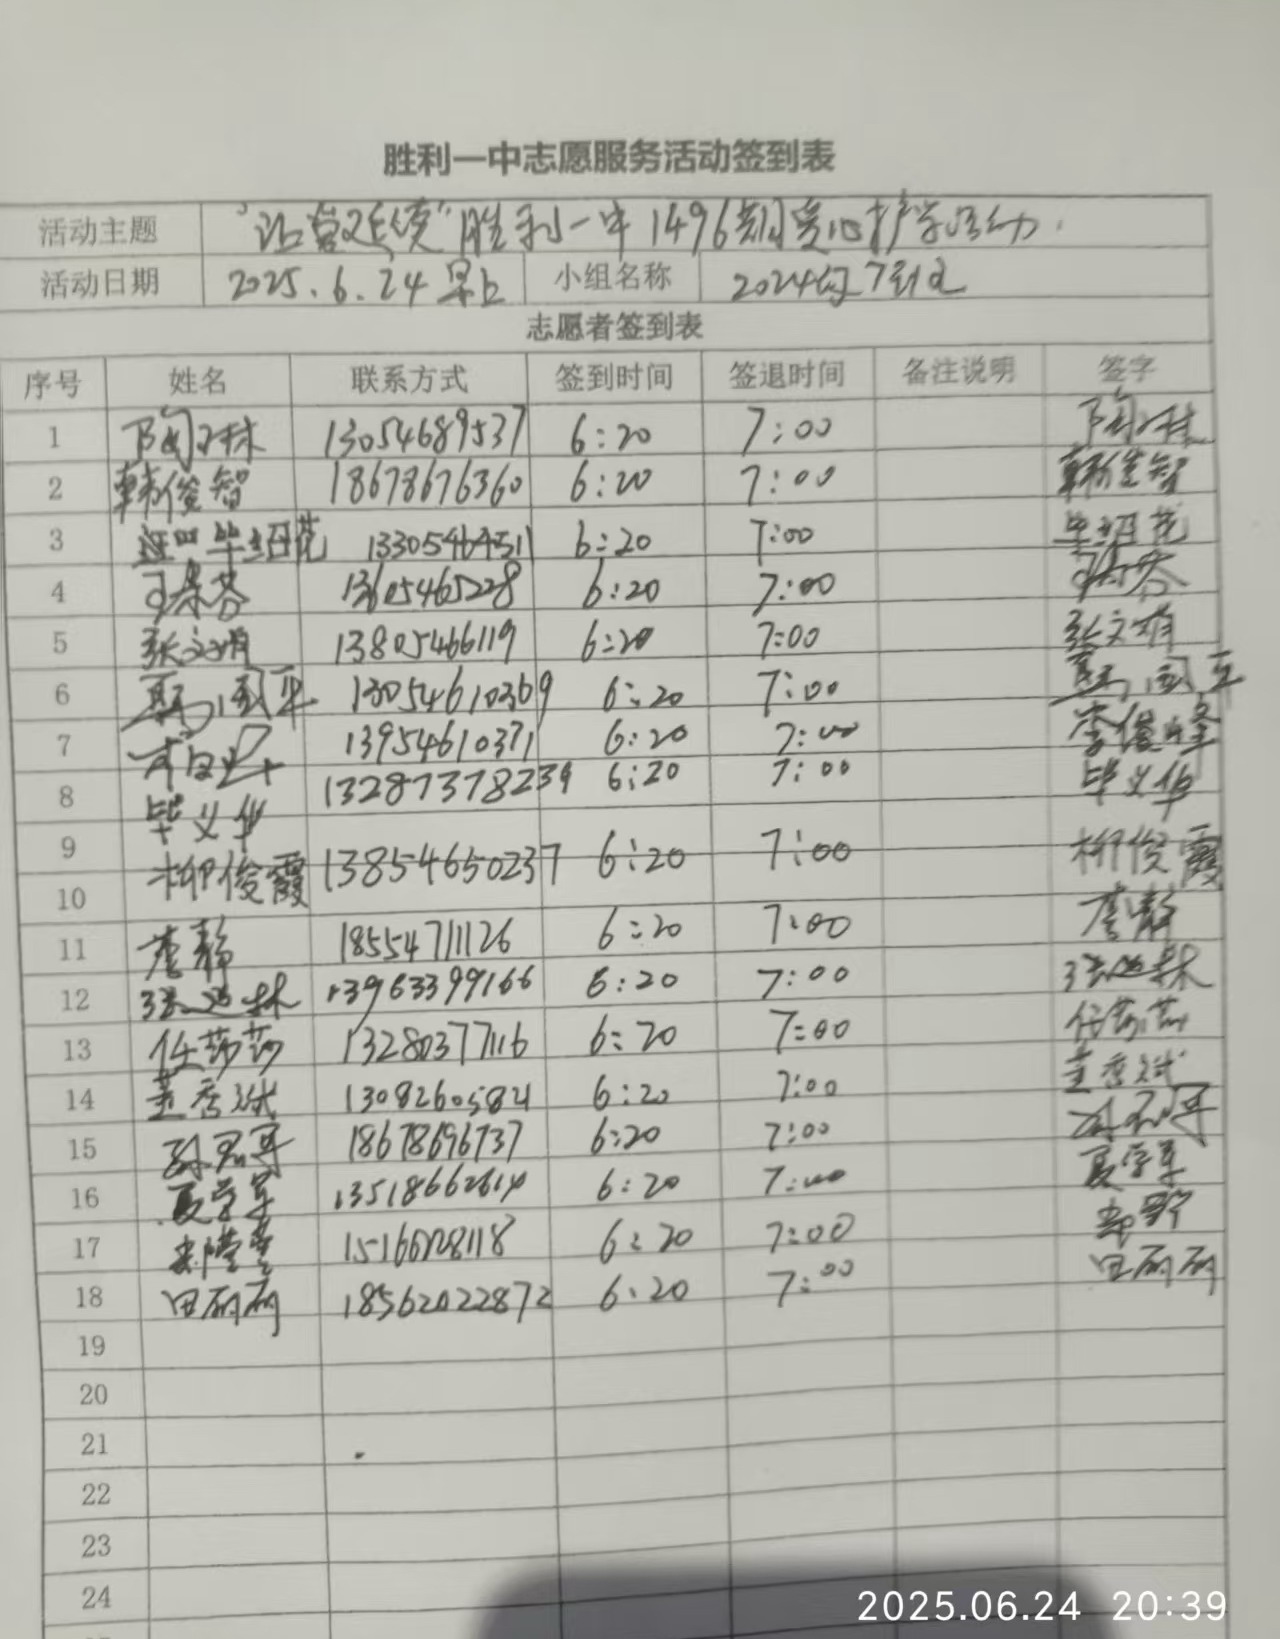 胜利一中志愿服务活动签到表
活动主题 "让爱延续"胜利一中1496期爱心护学活动.
活动日期 2025.6.24 早上 小组名称 2024级7班
志愿者签到表
序号 姓名 联系方式 签到时间 签退时间 备注说明 签字
1 13054689537 6:20 7:00
2 韩俊智 18678676360 6:20 7:00 韩俊智
3 毕娟花 13305464511 6:20 7:00 毕娟花
4 13605465228 6:20 7:00
5 张文娟 13805466119 6:20 7:00 张文娟
6 国平 13054610369 6:20 7:00 国平
7 13954610371 6:20 7:00 李俊峰
8 毕义华 13287378239 6:20 7:00 毕义华
9 柳俊霞 13854650237 6:20 7:00 柳俊霞
10
11 李静 18554711126 6:20 7:00 李静
12 13963399166 6:20 7:00
13 任莎莎 13280377116 6:20 7:00 任莎莎
14 董秀斌 13082605821 6:20 7:00 董秀斌
15 18678696737 6:20 7:00
16 夏学军 13518662614 6:20 7:00 夏学军
17 15166028118 6:20 7:00
18 田丽丽 18562022872 6:20 7:00 田丽丽
19
20
21
22
23
24
2025.06.24 20:39